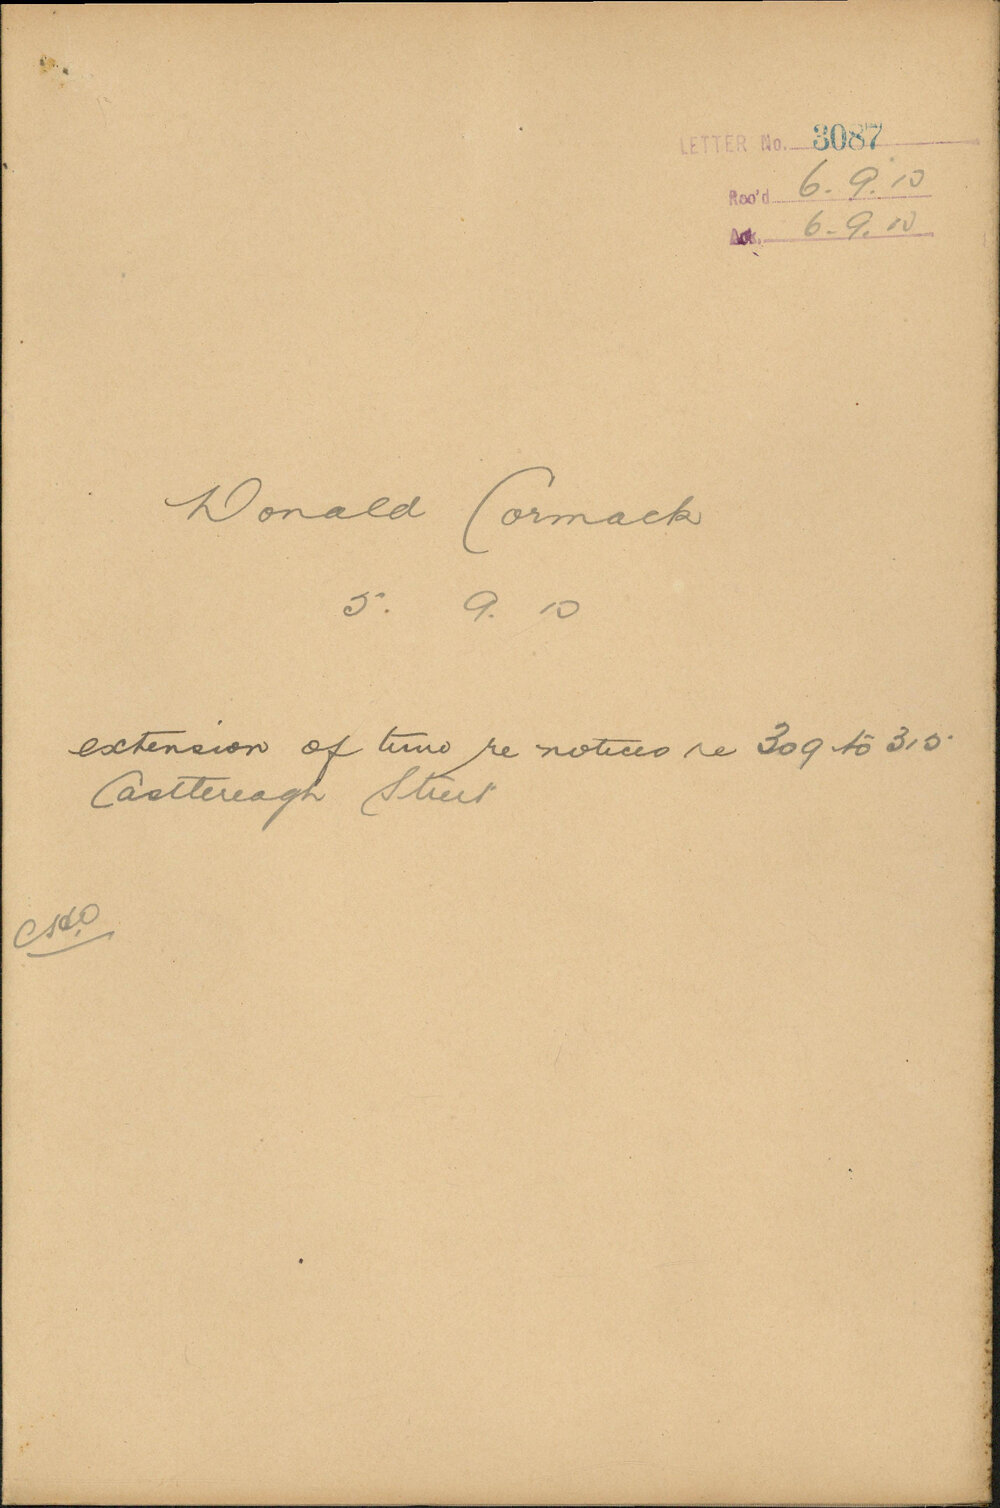 LETTER No. 3087
Rec'd 6. 9. 10
Ack. 6. 9. 10
Donald Cormack
5. 9. 10
extension of time re notices re 309 to 315
Casttereagh Street